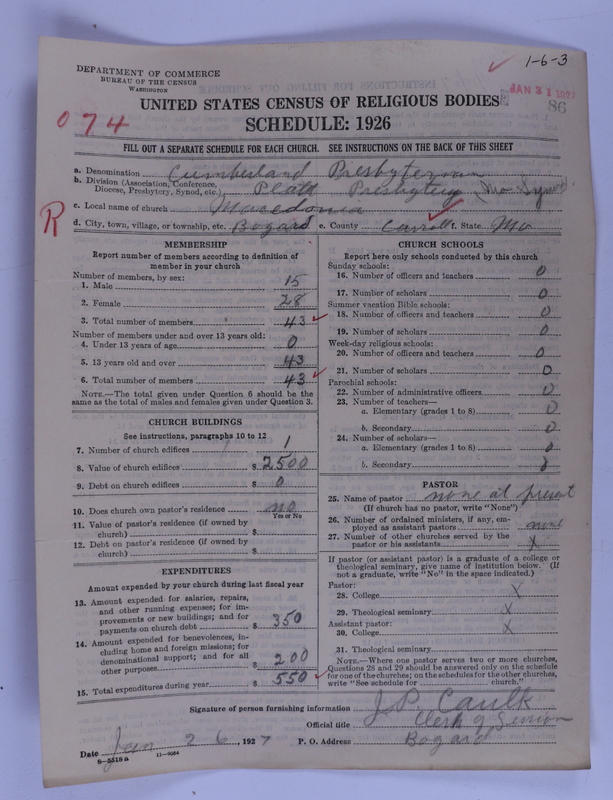 1-6-3
DEPARTMENT OF COMMERCE
BUREAU OF THE CENSUS
WASHINGTON
JAN 31 1927
86
UNITED STATES CENSUS OF RELIGIOUS BODIES
SCHEDULE: 1926
074
FILL OUT A SEPARATE SCHEDULE FOR EACH CHURCH. SEE INSTRUCTIONS ON THE BACK OF THIS SHEET
a. Denomination Cumberland Presbyterian
b. Division (Association, Conference, Diocese, Presbytery, Synod, etc.) Platt Presbytery (Mo Synod)
c. Local name of church Macedonia
R
d. City, town, village, or township, etc. Bogard e. County Carroll f. State Mo
MEMBERSHIP
Report number of members according to definition of
member in your church
Number of members, by sex:
1. Male 15
2. Female 28
3. Total number of members 43
Number of members under and over 13 years old:
4. Under 13 years of age 0
5. 13 years old and over 43
6. Total number of members 43
NOTE.—The total given under Question 6 should be the
same as the total of males and females given under Question 3.
CHURCH BUILDINGS
See instructions, paragraphs 10 to 12
7. Number of church edifices 1
8. Value of church edifices $ 2500
9. Debt on church edifices $ 0
10. Does church own pastor's residence no
Yes or No
11. Value of pastor's residence (if owned by
church) $
12. Debt on pastor's residence (if owned by
church) $
EXPENDITURES
Amount expended by your church during last fiscal year
13. Amount expended for salaries, repairs,
and other running expenses; for im-
provements or new buildings; and for
payments on church debt $ 350
14. Amount expended for benevolences, in-
cluding home and foreign missions; for
denominational support; and for all
other purposes $ 200
15. Total expenditures during year $ 550
CHURCH SCHOOLS
Report here only schools conducted by this church
Sunday schools:
16. Number of officers and teachers 0
17. Number of scholars 0
Summer vacation Bible schools:
18. Number of officers and teachers 0
19. Number of scholars 0
Week-day religious schools:
20. Number of officers and teachers 0
21. Number of scholars 0
Parochial schools:
22. Number of administrative officers 0
23. Number of teachers—
a. Elementary (grades 1 to 8) 0
b. Secondary 0
24. Number of scholars—
a. Elementary (grades 1 to 8) 0
b. Secondary 0
PASTOR
25. Name of pastor none at present
(If church has no pastor, write "None")
26. Number of ordained ministers, if any, em-
ployed as assistant pastors none
27. Number of other churches served by the
pastor or his assistants X
If pastor (or assistant pastor) is a graduate of a college or
theological seminary, give name of institution below. (If
not a graduate, write "No" in the space indicated.)
Pastor:
28. College X
29. Theological seminary X
Assistant pastor:
30. College X
31. Theological seminary
NOTE.—Where one pastor serves two or more churches,
Questions 28 and 29 should be answered only on the schedule
for one of the churches; on the schedules for the other churches,
write "See schedule for church."
Signature of person furnishing information J. P. Caulk
Official title Clerk of Session
Date Jan 26, 1927 P. O. Address Bogard
8-5518a 11-9084